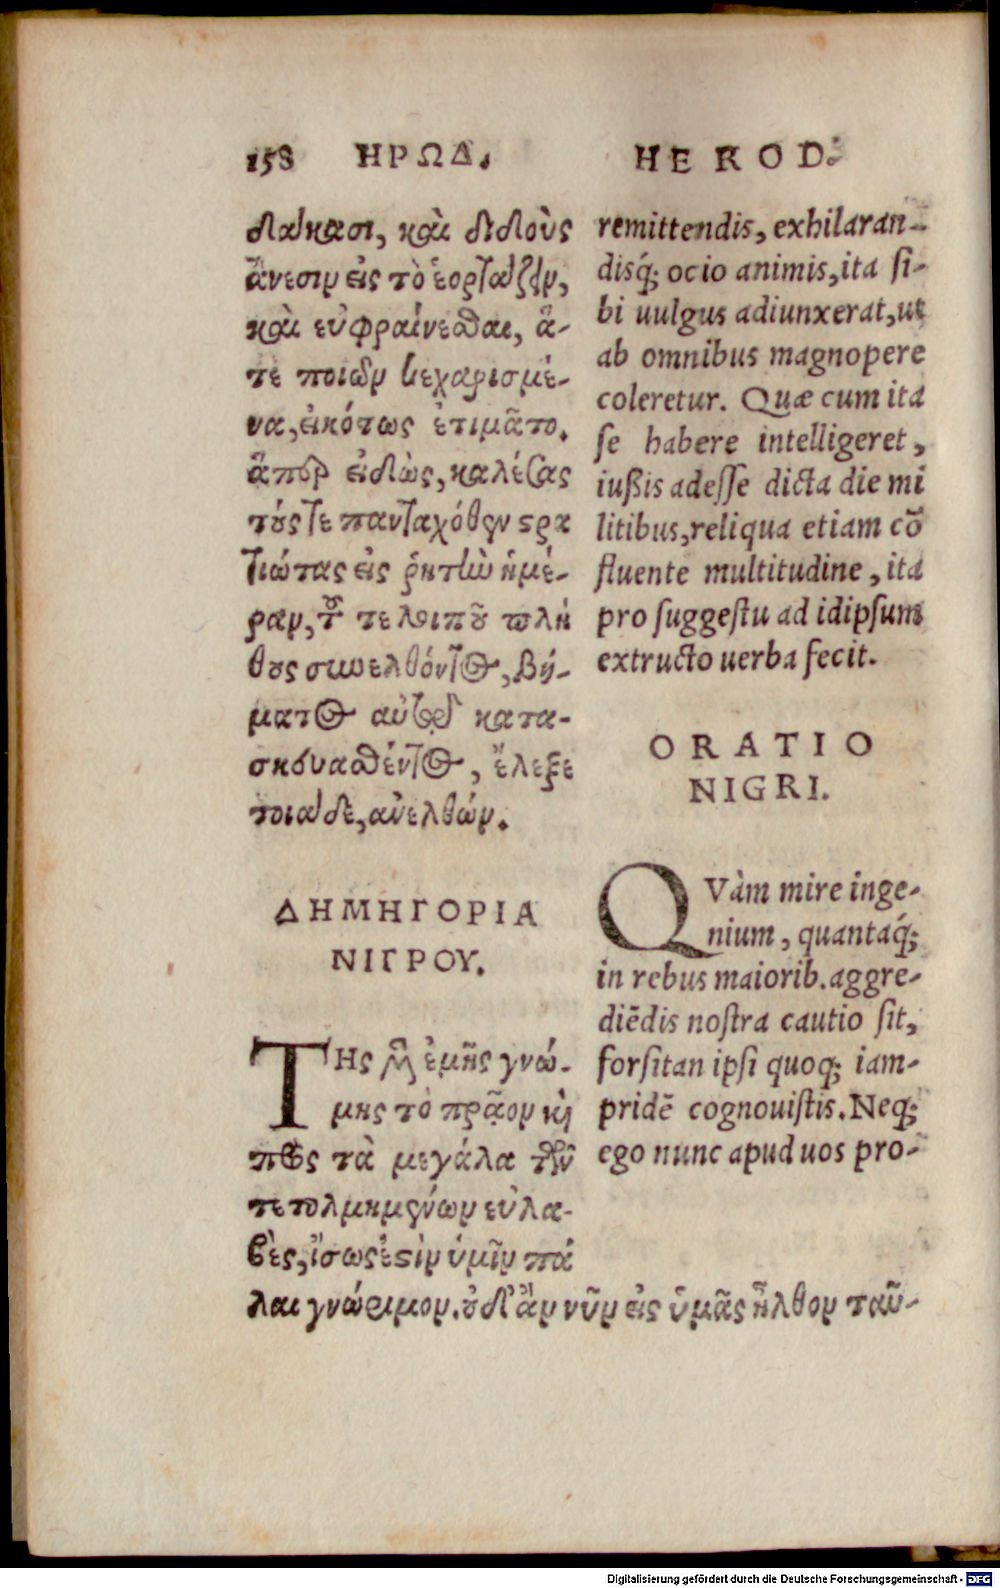 158 ΗΡΩΔ.
διαίκασι, καὶ διδοὺς
ἄνεσιν εἰς τὸ ἑορτάζειν,
καὶ εὐφραίνεσθαι, ἅ-
τε ποιῶν κεχαρισμέ-
να, εἰκότως ἐτιμᾶτο.
ἅπερ εἰδὼς, καλέσας
τούς τε πανταχόθεν στρα
τιώτας εἰς ῥητὴν ἡμέ-
ραν, τοῦ τε λοιποῦ πλή
θους συνελθόντος, βή-
ματος αὐτῷ κατα-
σκευασθέντος, ἔλεξε
τοιάδε, ἀνελθών.
ΔΗΜΗΓΟΡΙΑ
ΝΙΓΡΟΥ.
ΤΗς μὲν ἐμῆς γνώ-
μης τὸ πρᾷον καὶ
πρὸς τὰ μεγάλα τῶν
τετολμημένων εὐλα-
βὲς, ἴσως ἐστὶν ὑμῖν πά
λαι γνώριμον. οὐδ' ἂν νῦν εἰς ὑμᾶς ἦλθον ταῦ-
HEROD.
remittendis, exhilaran-
disq́; ocio animis, ita si-
bi uulgus adiunxerat, ut
ab omnibus magnopere
coleretur. Quæ cum ita
se habere intelligeret,
iußis adesse dicta die mi
litibus, reliqua etiam cō
fluente multitudine, ita
pro suggestu ad idipsum
extructo uerba fecit.
ORATIO
NIGRI.
QVàm mire inge-
nium, quantaq́;
in rebus maiorib. aggre-
diēdis nostra cautio sit,
forsitan ipsi quoq; iam-
pridē cognouistis. Neq;
ego nunc apud uos pro-
Digitalisierung gefördert durch die Deutsche Forschungsgemeinschaft - DFG